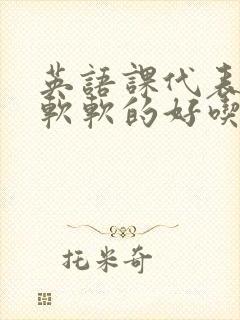 英語課代表
軟軟的好喫
托米奇